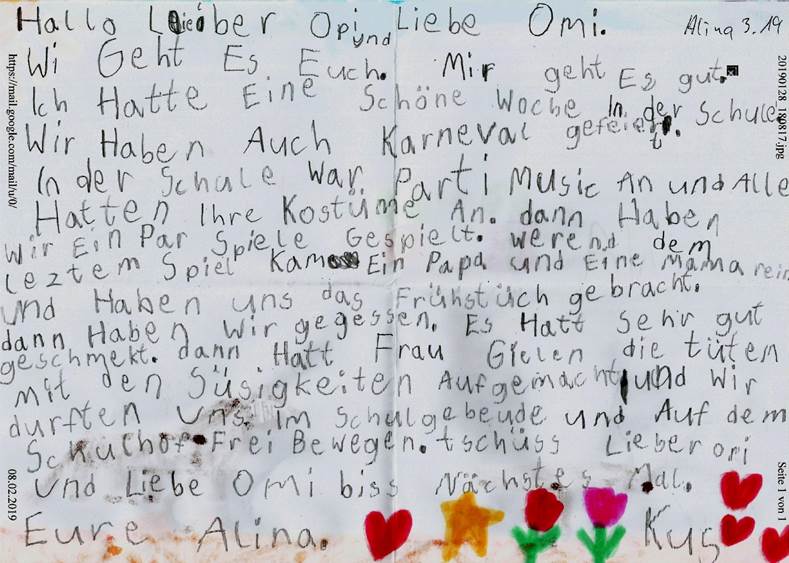 Hallo Lieber Opi und Liebe Omi. Alina 3.19
Wi Geht Es Euch. Mir geht Es gut.
Ich Hatte Eine Schöne Woche In der Schule
Wir Haben Auch Karneval gefeiert.
In der Schule war Parti Music An und Alle
Hatten Ihre Kostüme An. dann Haben
wir Ein Par Spiele Gespielt. werend dem
leztem Spiel Kam Ein Papa und Eine Mama rein
und Haben uns das Frühstüch gebracht.
dann Haben wir gegessen. Es Hatt Sehr gut
geschmekt. dann Hatt Frau Gielen die tüten
mit den Süsigkeiten Aufgemacht und wir
durften uns Im Schulgebeude und Auf dem
Schulhof Frei Bewegen. tschüss Lieber opi
und Liebe Omi biss Nächstes Mal.
Eure Alina. Kus
https://mail.google.com/mail/u/0/
08.02.2019
20190128_180817.jpg
Seite 1 von 1